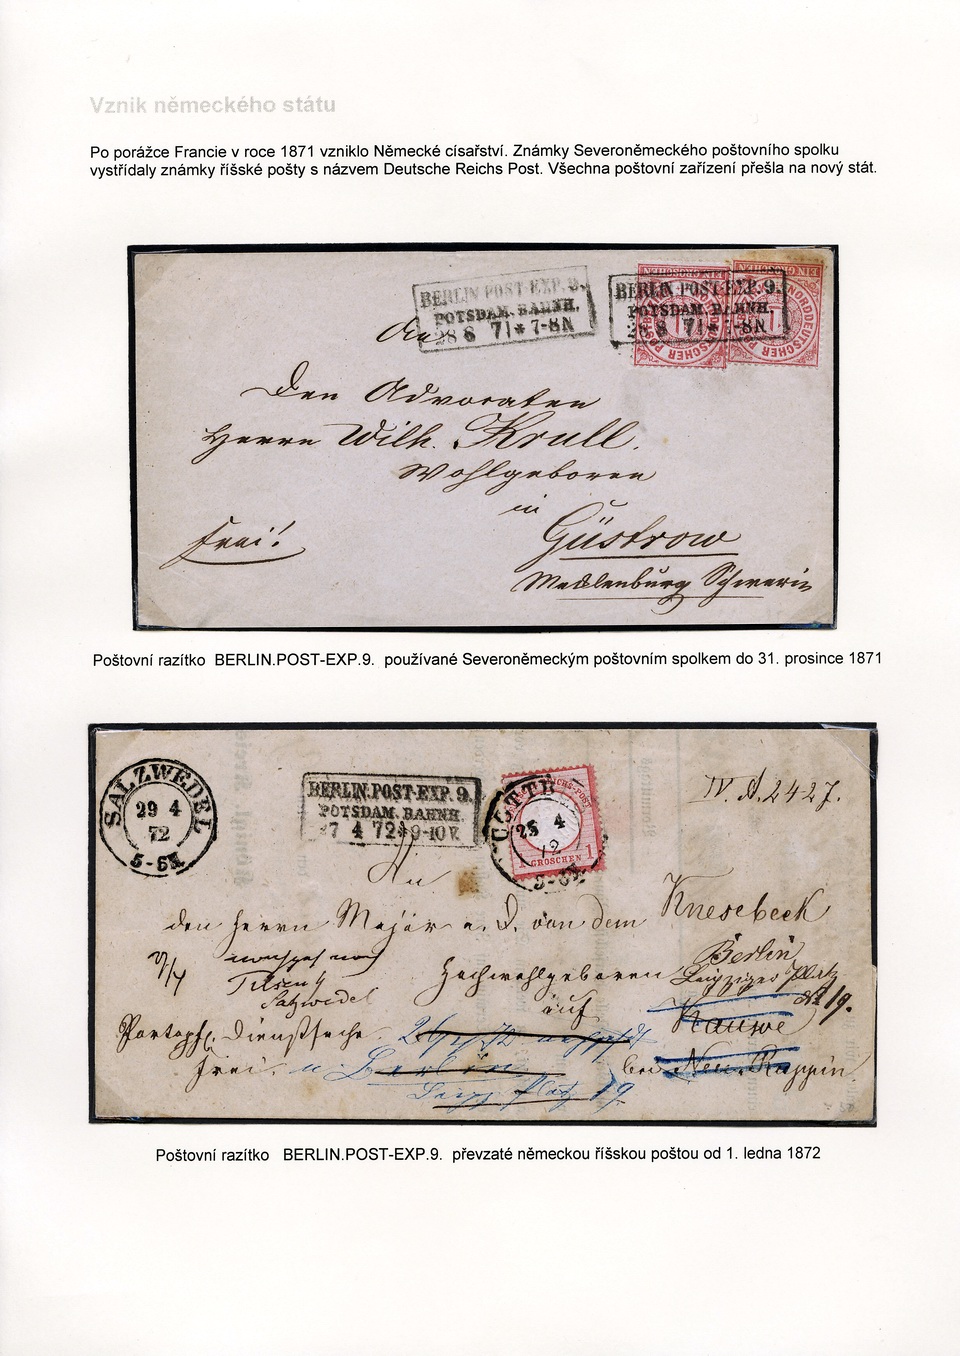 Vznik německého státu
Po porážce Francie v roce 1871 vzniklo Německé císařství. Známky Severoněmeckého poštovního spolku
vystřídaly známky říšské pošty s názvem Deutsche Reichs Post. Všechna poštovní zařízení přešla na nový stát.
BERLIN POST-EXP. 9.
POTSDAM. BAHNH.
28 8 71 * 7-8N
BERLIN POST-EXP. 9.
POTSDAM. BAHNH.
28 8 71 * 7-8N
EIN GROSCHEN
NORDDEUTSCHER
An
Den Advocaten
Herrn Wilh. Krull.
Wohlgeboren
in
frei!
Güstrow
Mecklenburg Schwerin
Poštovní razítko BERLIN.POST-EXP.9. používané Severoněmeckým poštovním spolkem do 31. prosince 1871
SALZWEDEL
29 4
72
5-6N
BERLIN.POST-EXP. 9.
POTSDAM. BAHNH.
7 4 72 * 9-10V.
COTTB
25 4
72
1 GROSCHEN 1
IV. A. 2427.
An
den Herrn Major a. D. von dem Knesebeck
Berlin
Hochwohlgeboren Leipziger Platz
No 19.
Tilsen
Salzwedel
auf
Dienstsache
frei.
Berlin
bei Neu-Ruppin
Leipz. Platz 19.
Poštovní razítko BERLIN.POST-EXP.9. převzaté německou říšskou poštou od 1. ledna 1872